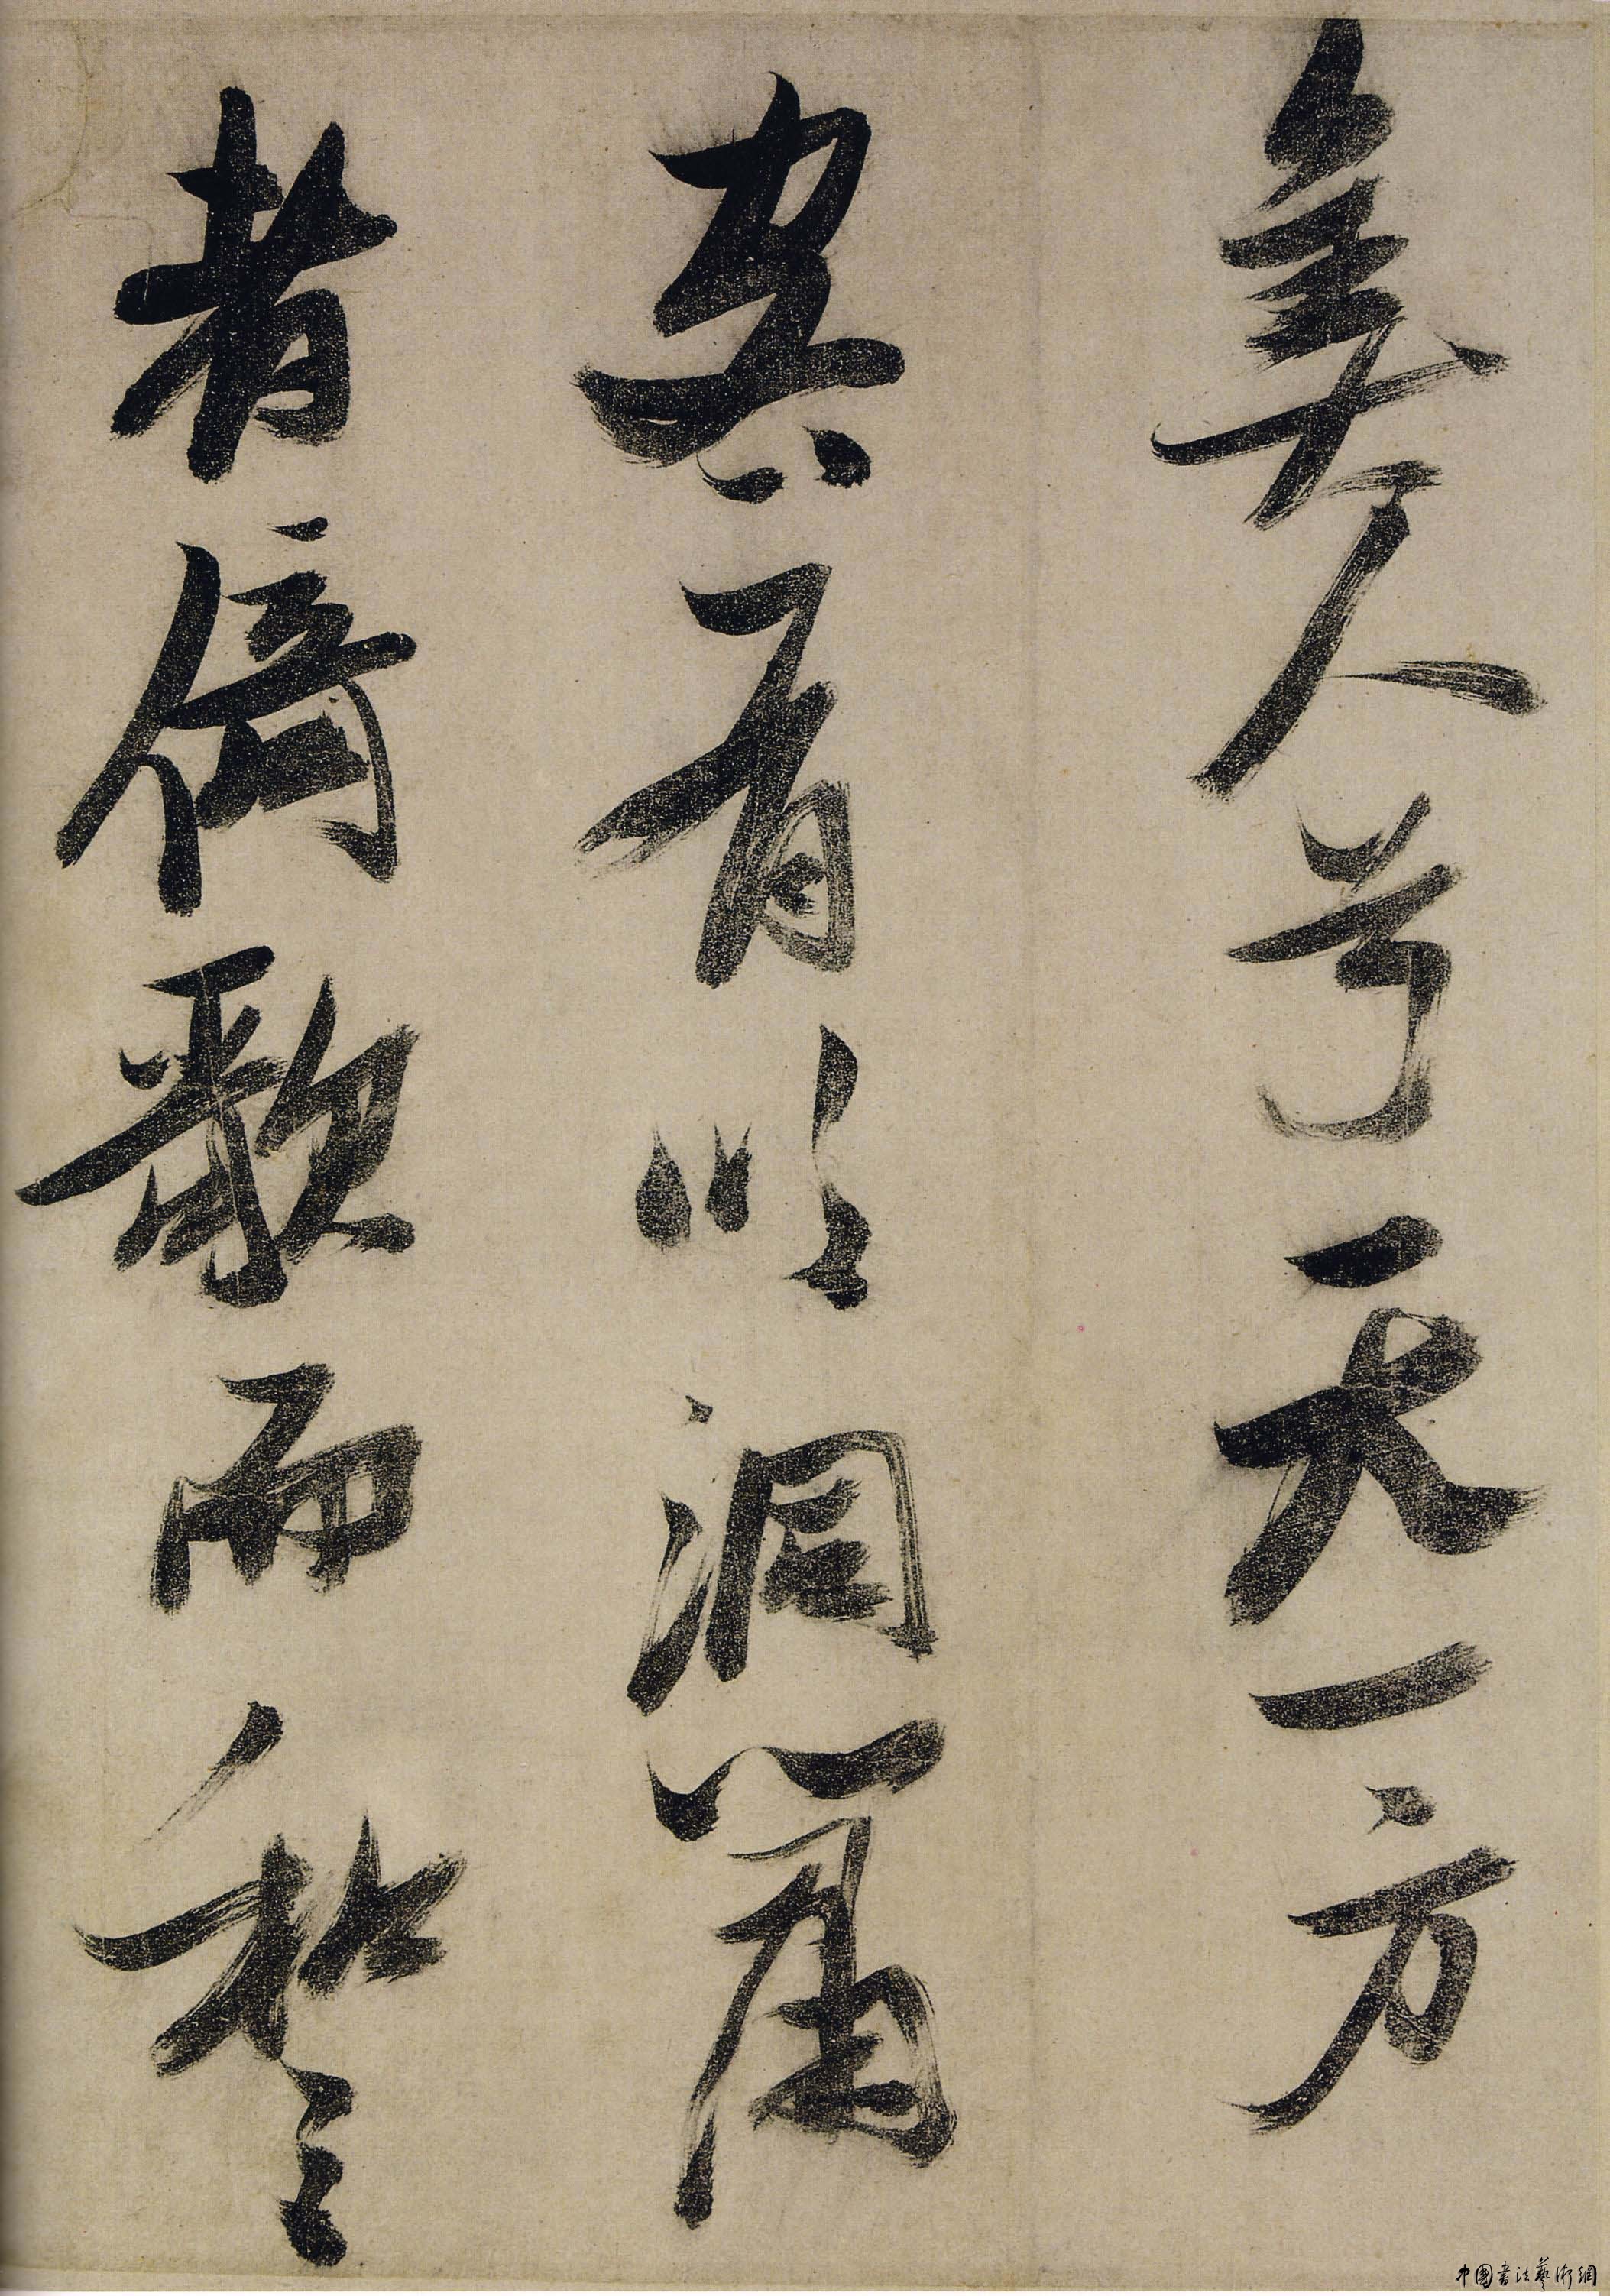 美人兮天一方
客有吹洞簫
者倚歌而和之
中國書法藝術網